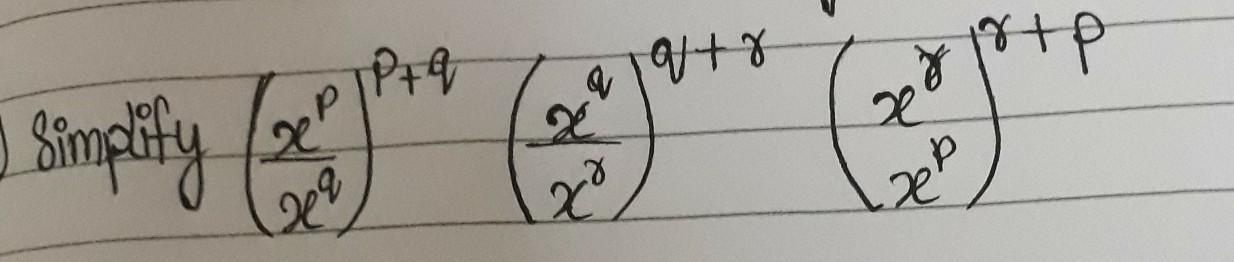 Simplify (x^p/x^q)^(p+q) (x^q/x^r)^(q+r) (x^r/x^p)^(r+p)